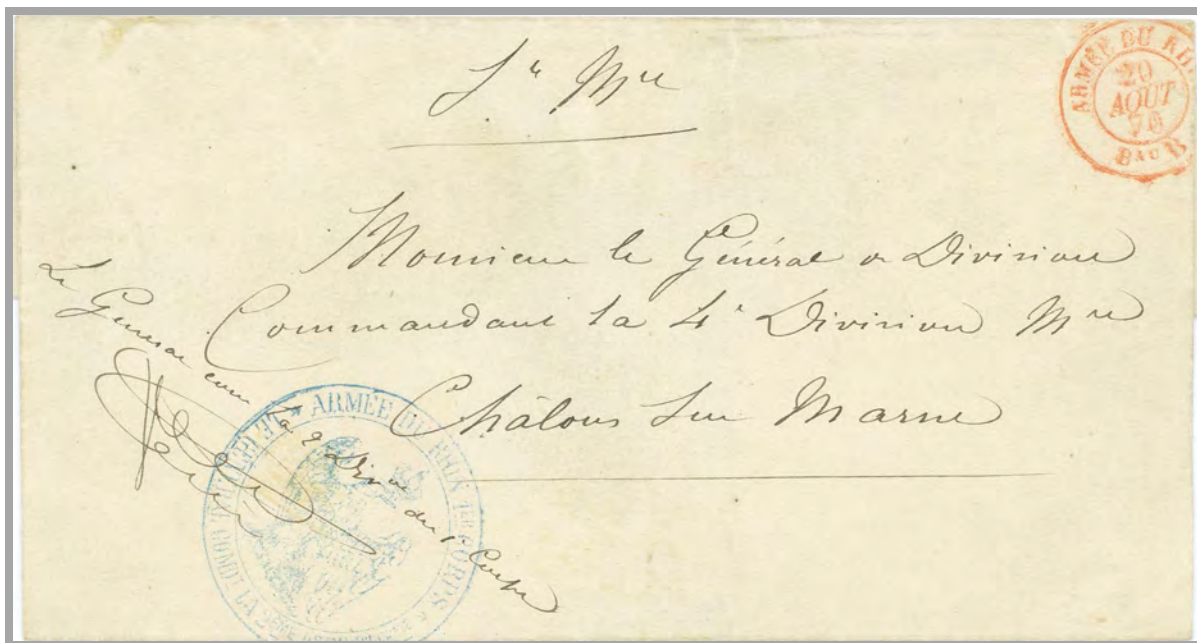 Sce Mre
ARMÉE DU RHIN
20
AOUT
70
Bau B
Monsieur le Général de Division
Commandant la 4e Division Mre
Châlons sur Marne
Le General com la 2e Divon du 1er Corps
ARMÉE DU RHIN 1ER CORPS
LE GÉNÉRAL COMDT LA 2ME